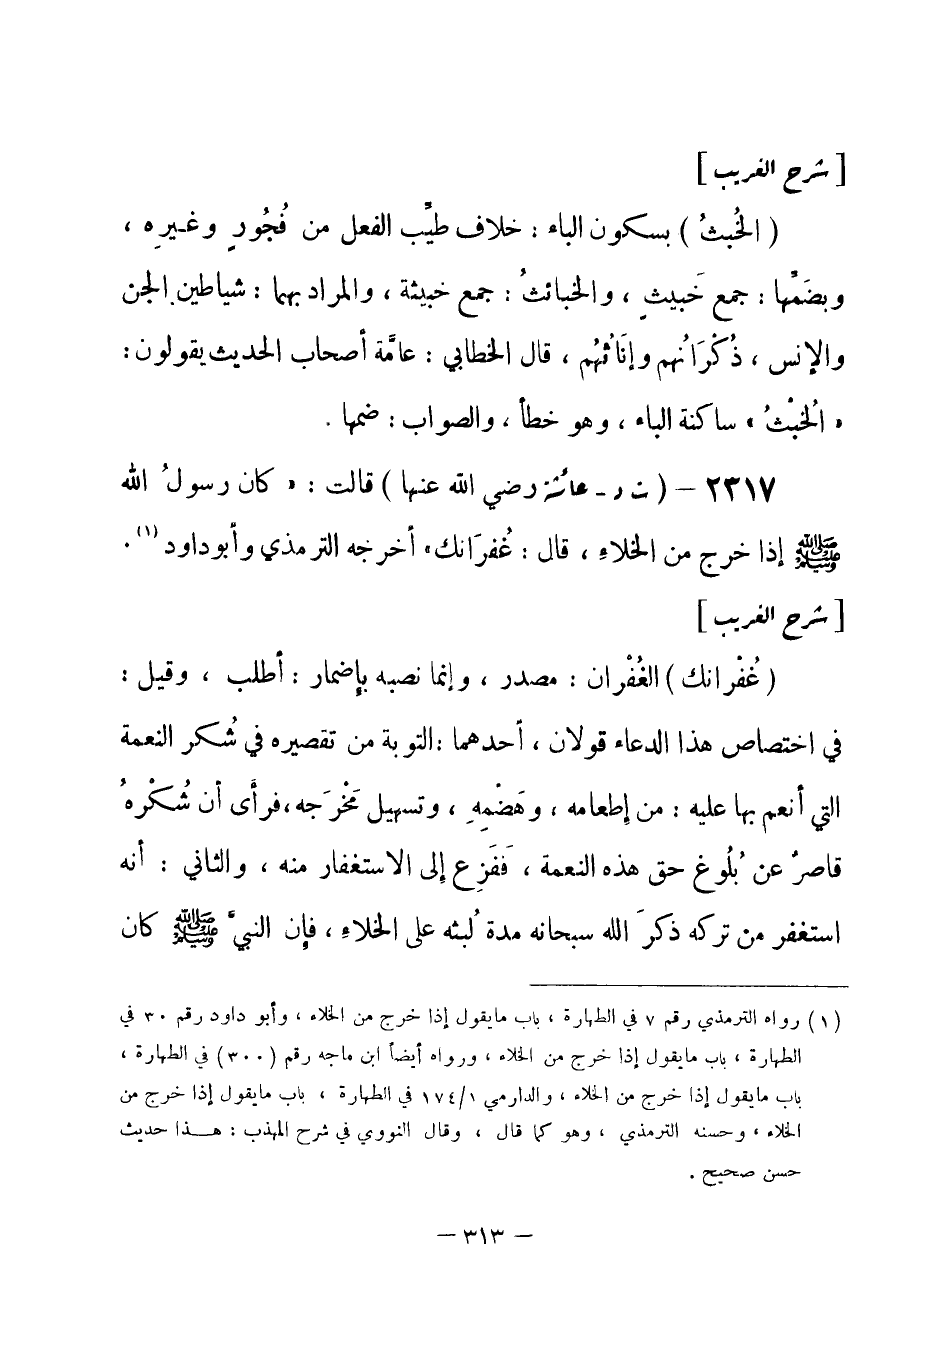 [ شرح الغريب ]
( الخُبثُ ) بسكون الباء : خلاف طيِّب الفعل من فُجُورٍ وغيرِهِ ،
وبضَمِّها : جمع خَبيثٍ ، والخبائثُ : جمع خبيثة ، والمراد بهما : شياطين الجن
والإنس ، ذُكْرَانُهم وإنَاثُهُم ، قال الخطابي : عامَّة أصحاب الحديث يقولون :
« الخُبْثُ » ساكنة الباء ، وهو خطأ ، والصواب : ضمها .
٢٣١٧ – ( ت د ـ عائشة رضي الله عنها ) قالت : « كان رسولُ الله
ﷺ إذا خرج من الخلاءِ ، قال : غُفرَانك» أخرجه الترمذي وأبو داود (١) .
[ شرح الغريب ]
( غُفْرانك ) الغُفْران : مصدر ، وإنما نصبه بإضمار : أطلب ، وقيل :
في اختصاص هذا الدعاء قولان ، أحدهما : التوبة من تقصيره في شُكر النعمة
التي أنعم بها عليه : من إطعامه ، وهَضْمِهِ ، وتسهيل مَخْرَجه ، فرأى أن شُكْرهُ
قاصرٌ عن بُلُوغ حق هذه النعمة ، فَفَزِع إلى الاستغفار منه ، والثاني : أنه
استغفر من تركه ذكرَ الله سبحانه مدة لُبثه على الخلاءِ ، فإن النبيَّ ﷺ كان
(١) رواه الترمذي رقم ٧ في الطهارة ، باب مايقول إذا خرج من الخلاء ، وأبو داود رقم ٣٠ في
الطهارة ، باب مايقول إذا خرج من الخلاء ، ورواه أيضاً ابن ماجه رقم (٣٠٠) في الطهارة ،
باب مايقول إذا خرج من الخلاء ، والدارمي ١/١٧٤ في الطهارة ، باب مايقول إذا خرج من
الخلاء ، وحسنه الترمذي ، وهو كما قال ، وقال النووي في شرح المهذب : هـذا حديث
حسن صحيح .
– ٣١٣ –